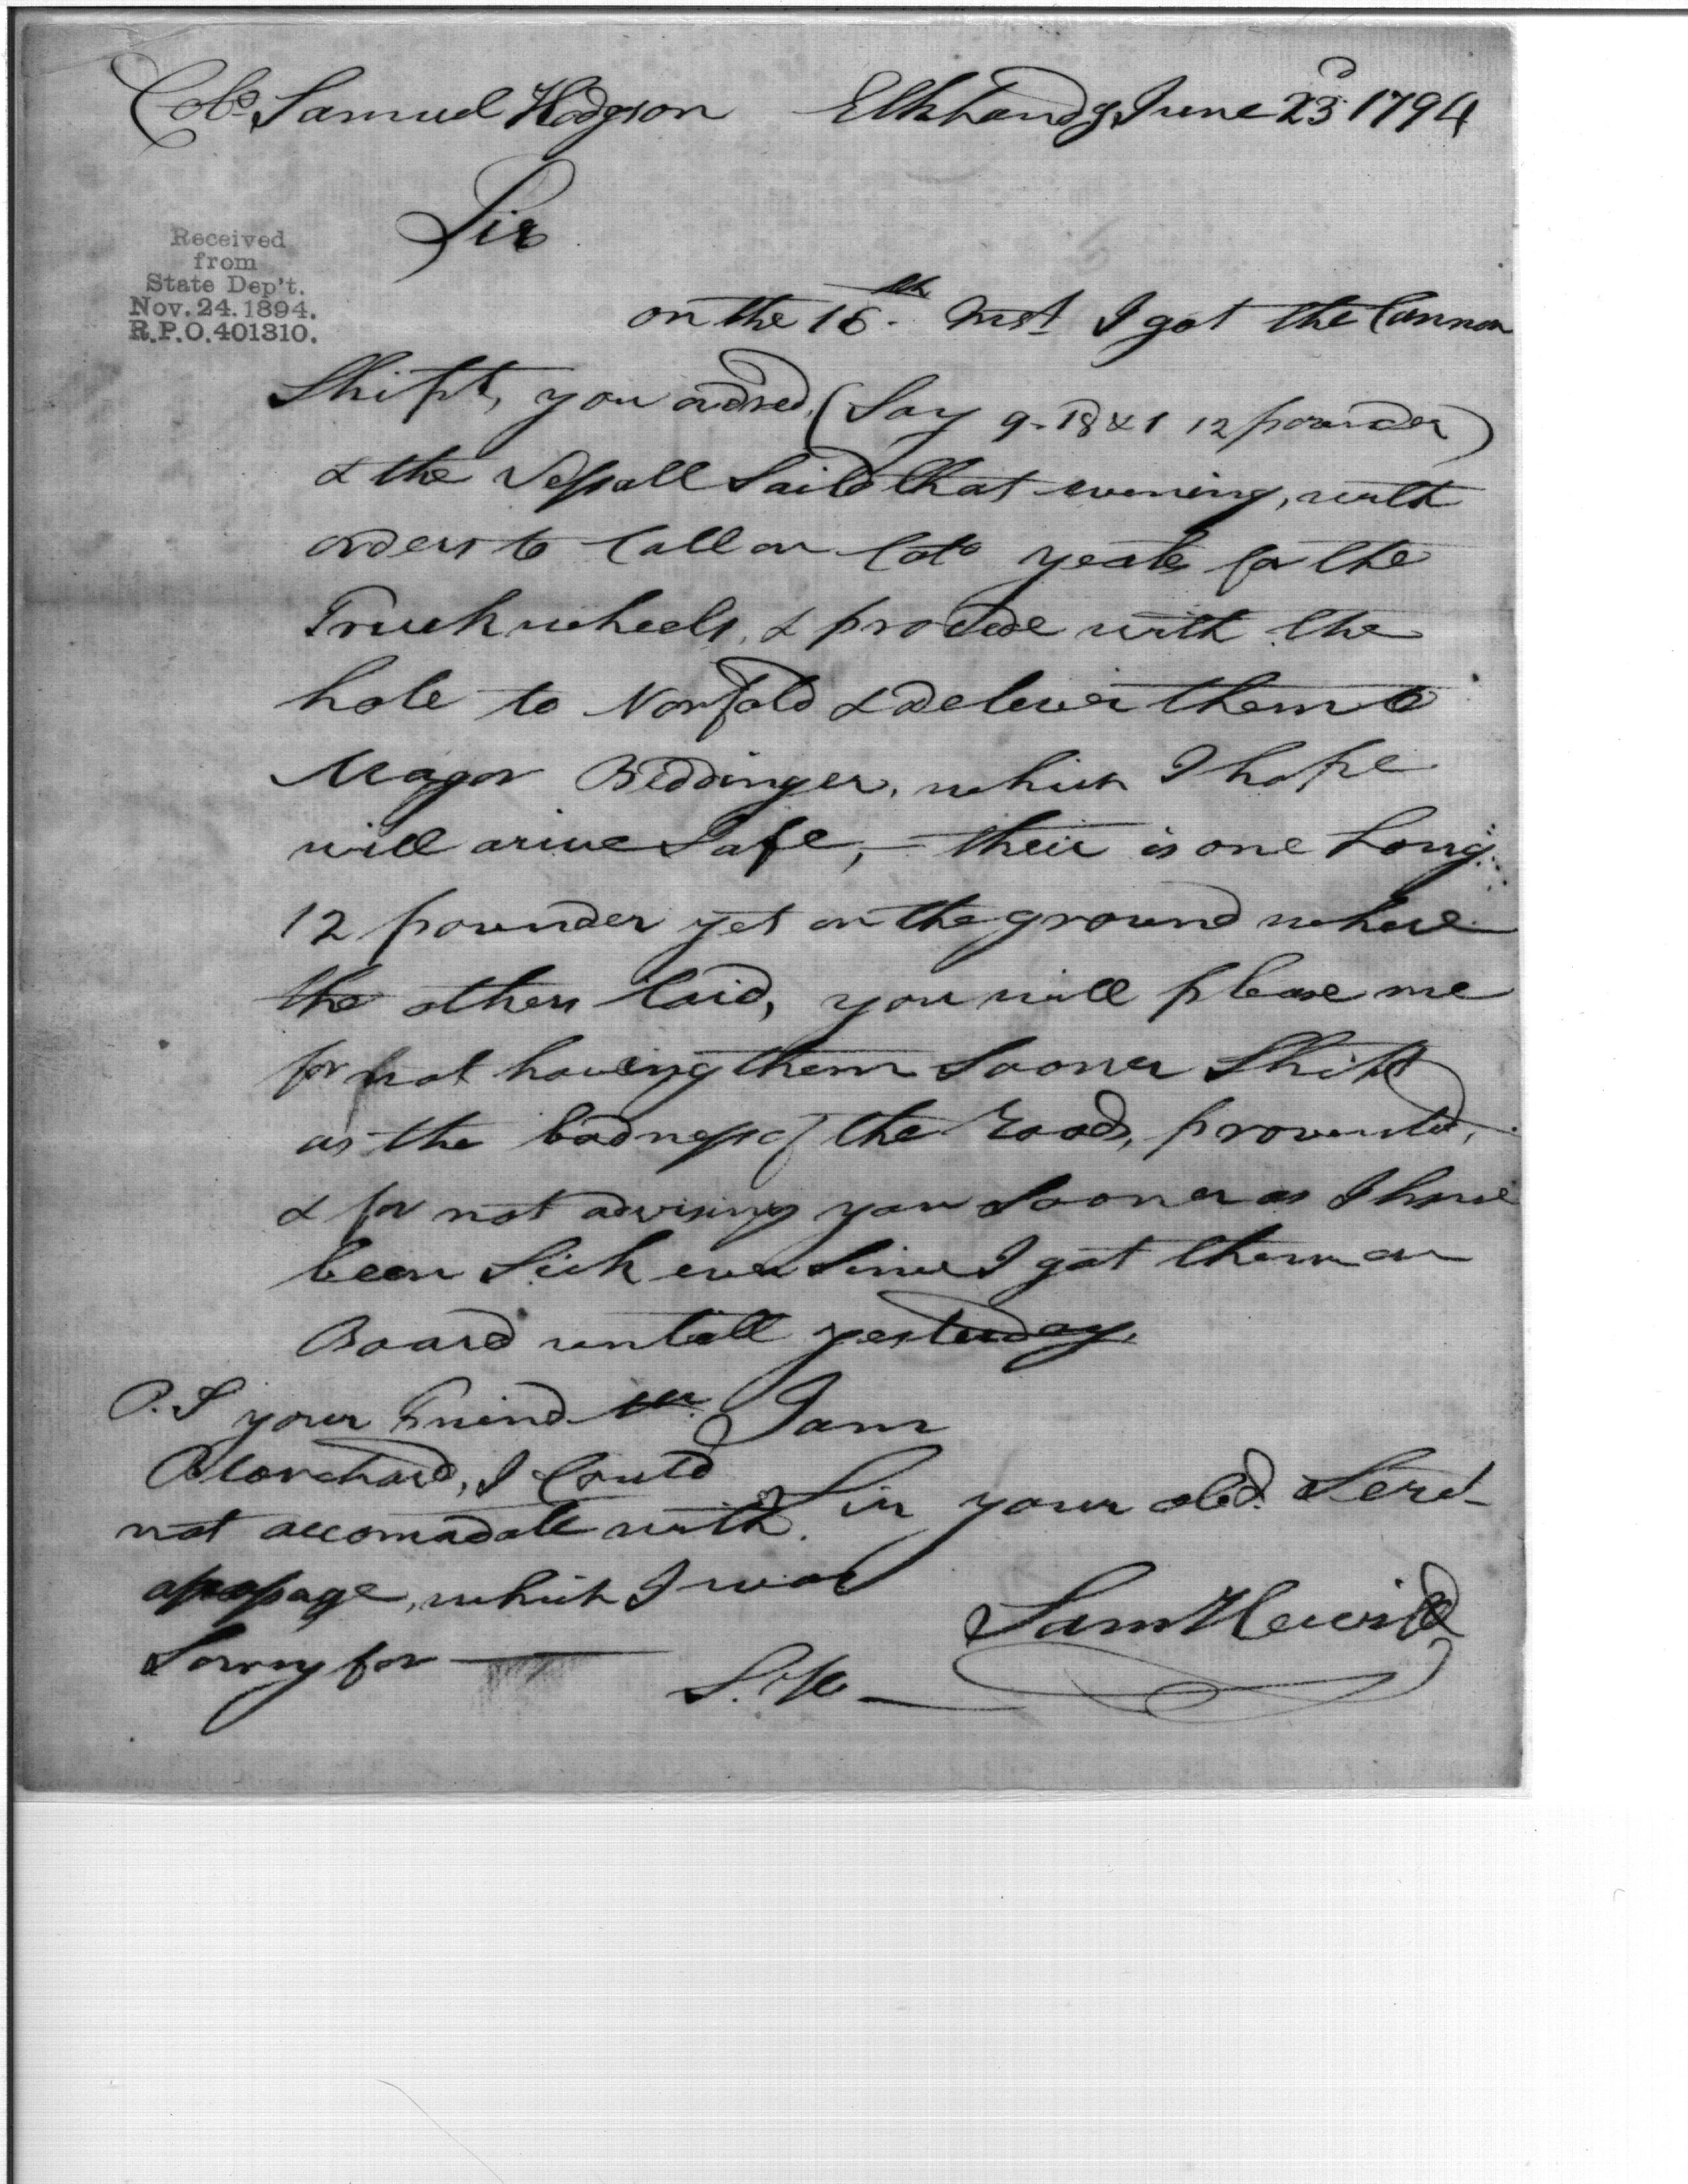 Colo Samuel Hodgson Elk Landg June 23d 1794
Sir
Received
from
State Dep't.
Nov. 24. 1894.
R.P.O. 401310.
on the 16th Inst I got the Cannon
Shipt, you ordred, (Say 9- 18 & 1 12 pounder)
& the Vessall Saild that evening, with
orders to Call on Colo yeates for the
Truck wheels, & procede with the
hole to Norfold & deliver them to
Magor Beddinger, which I hope
will arive Safe, - their is one Long
12 pounder yet on the ground where
the others laid, you will please me
for not having them Sooner Shipt
as the badness of the Roads, provented,
& for not advising you Sooner as I have
been Sick ever Since I got them on
Board untill yesterday.
I am
Sir your obed. Servt
Saml Hewitt
P.S your Friend Mr.
Blanchard, I Could
not accomadate with
a passage, which I was
Sorry for
S. H